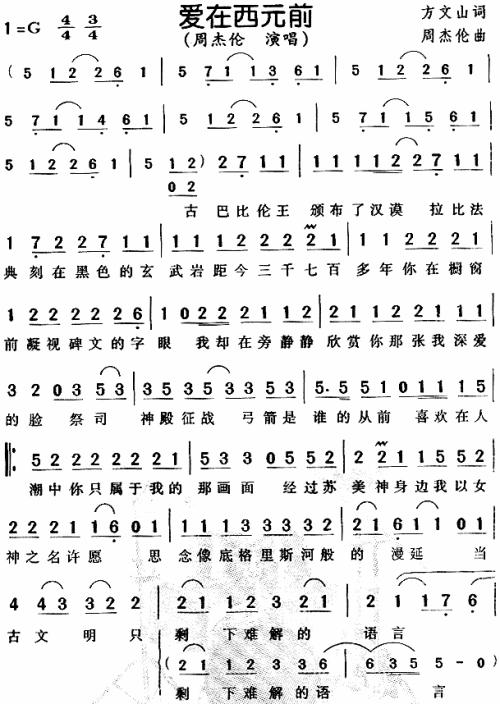 爱在西元前
1=G 4/4 3/4
(周杰伦 演唱)
方文山词
周杰伦曲
(5 1 2 2 6 1 | 5 7 1 1 3 6 1 | 5 1 2 2 6 1 |
5 7 1 1 4 6 1 | 5 1 2 2 6 1 | 5 7 1 1 5 6 1 |
5 1 2 2 6 1 | 5 1 2) 2 7 1 1 | 1 1 1 1 2 2 7 1 1 |
0 2
古 巴比伦王 颁布了汉谟 拉比法
1 7 2 2 7 1 1 | 1 1 1 2 2 2 2 1 | 1 1 2 2 2 2
典 刻在黑色的玄 武岩距今三千七百 多年你在橱窗
1 2 2 2 2 2 6 | 1 0 2 2 2 1 1 2 | 2 1 2 1 2 2 1 1
前凝视碑文的字 眼 我却在旁静静 欣赏你那张我深爱
3 2 0 3 5 3 | 3 5 3 5 3 3 5 3 | 5· 5 5 1 0 1 1 1 5
的脸 祭司 神殿征战 弓箭是 谁的从前 喜欢在人
5 2 2 2 2 2 2 1 | 5 3 3 0 5 5 2 | 2 1 1 1 1 5 5 2
潮中你只属于我的 那画面 经过苏 美神身边我以女
2 2 2 2 1 6 0 1 | 1 1 1 2 2 2 1 1 | 2 1 6 1 1 0 1
神之名许愿 思 念像底格里斯河般 的 漫延 当
4 4 3 3 2 2 | 2 1 1 2 3 2 1 | 2 1 1 7 6
古文明只 剩 下难解的 语言
(2 1 1 2 3 3 6 | 6 3 5 5 - 0)
剩 下难解的语 言